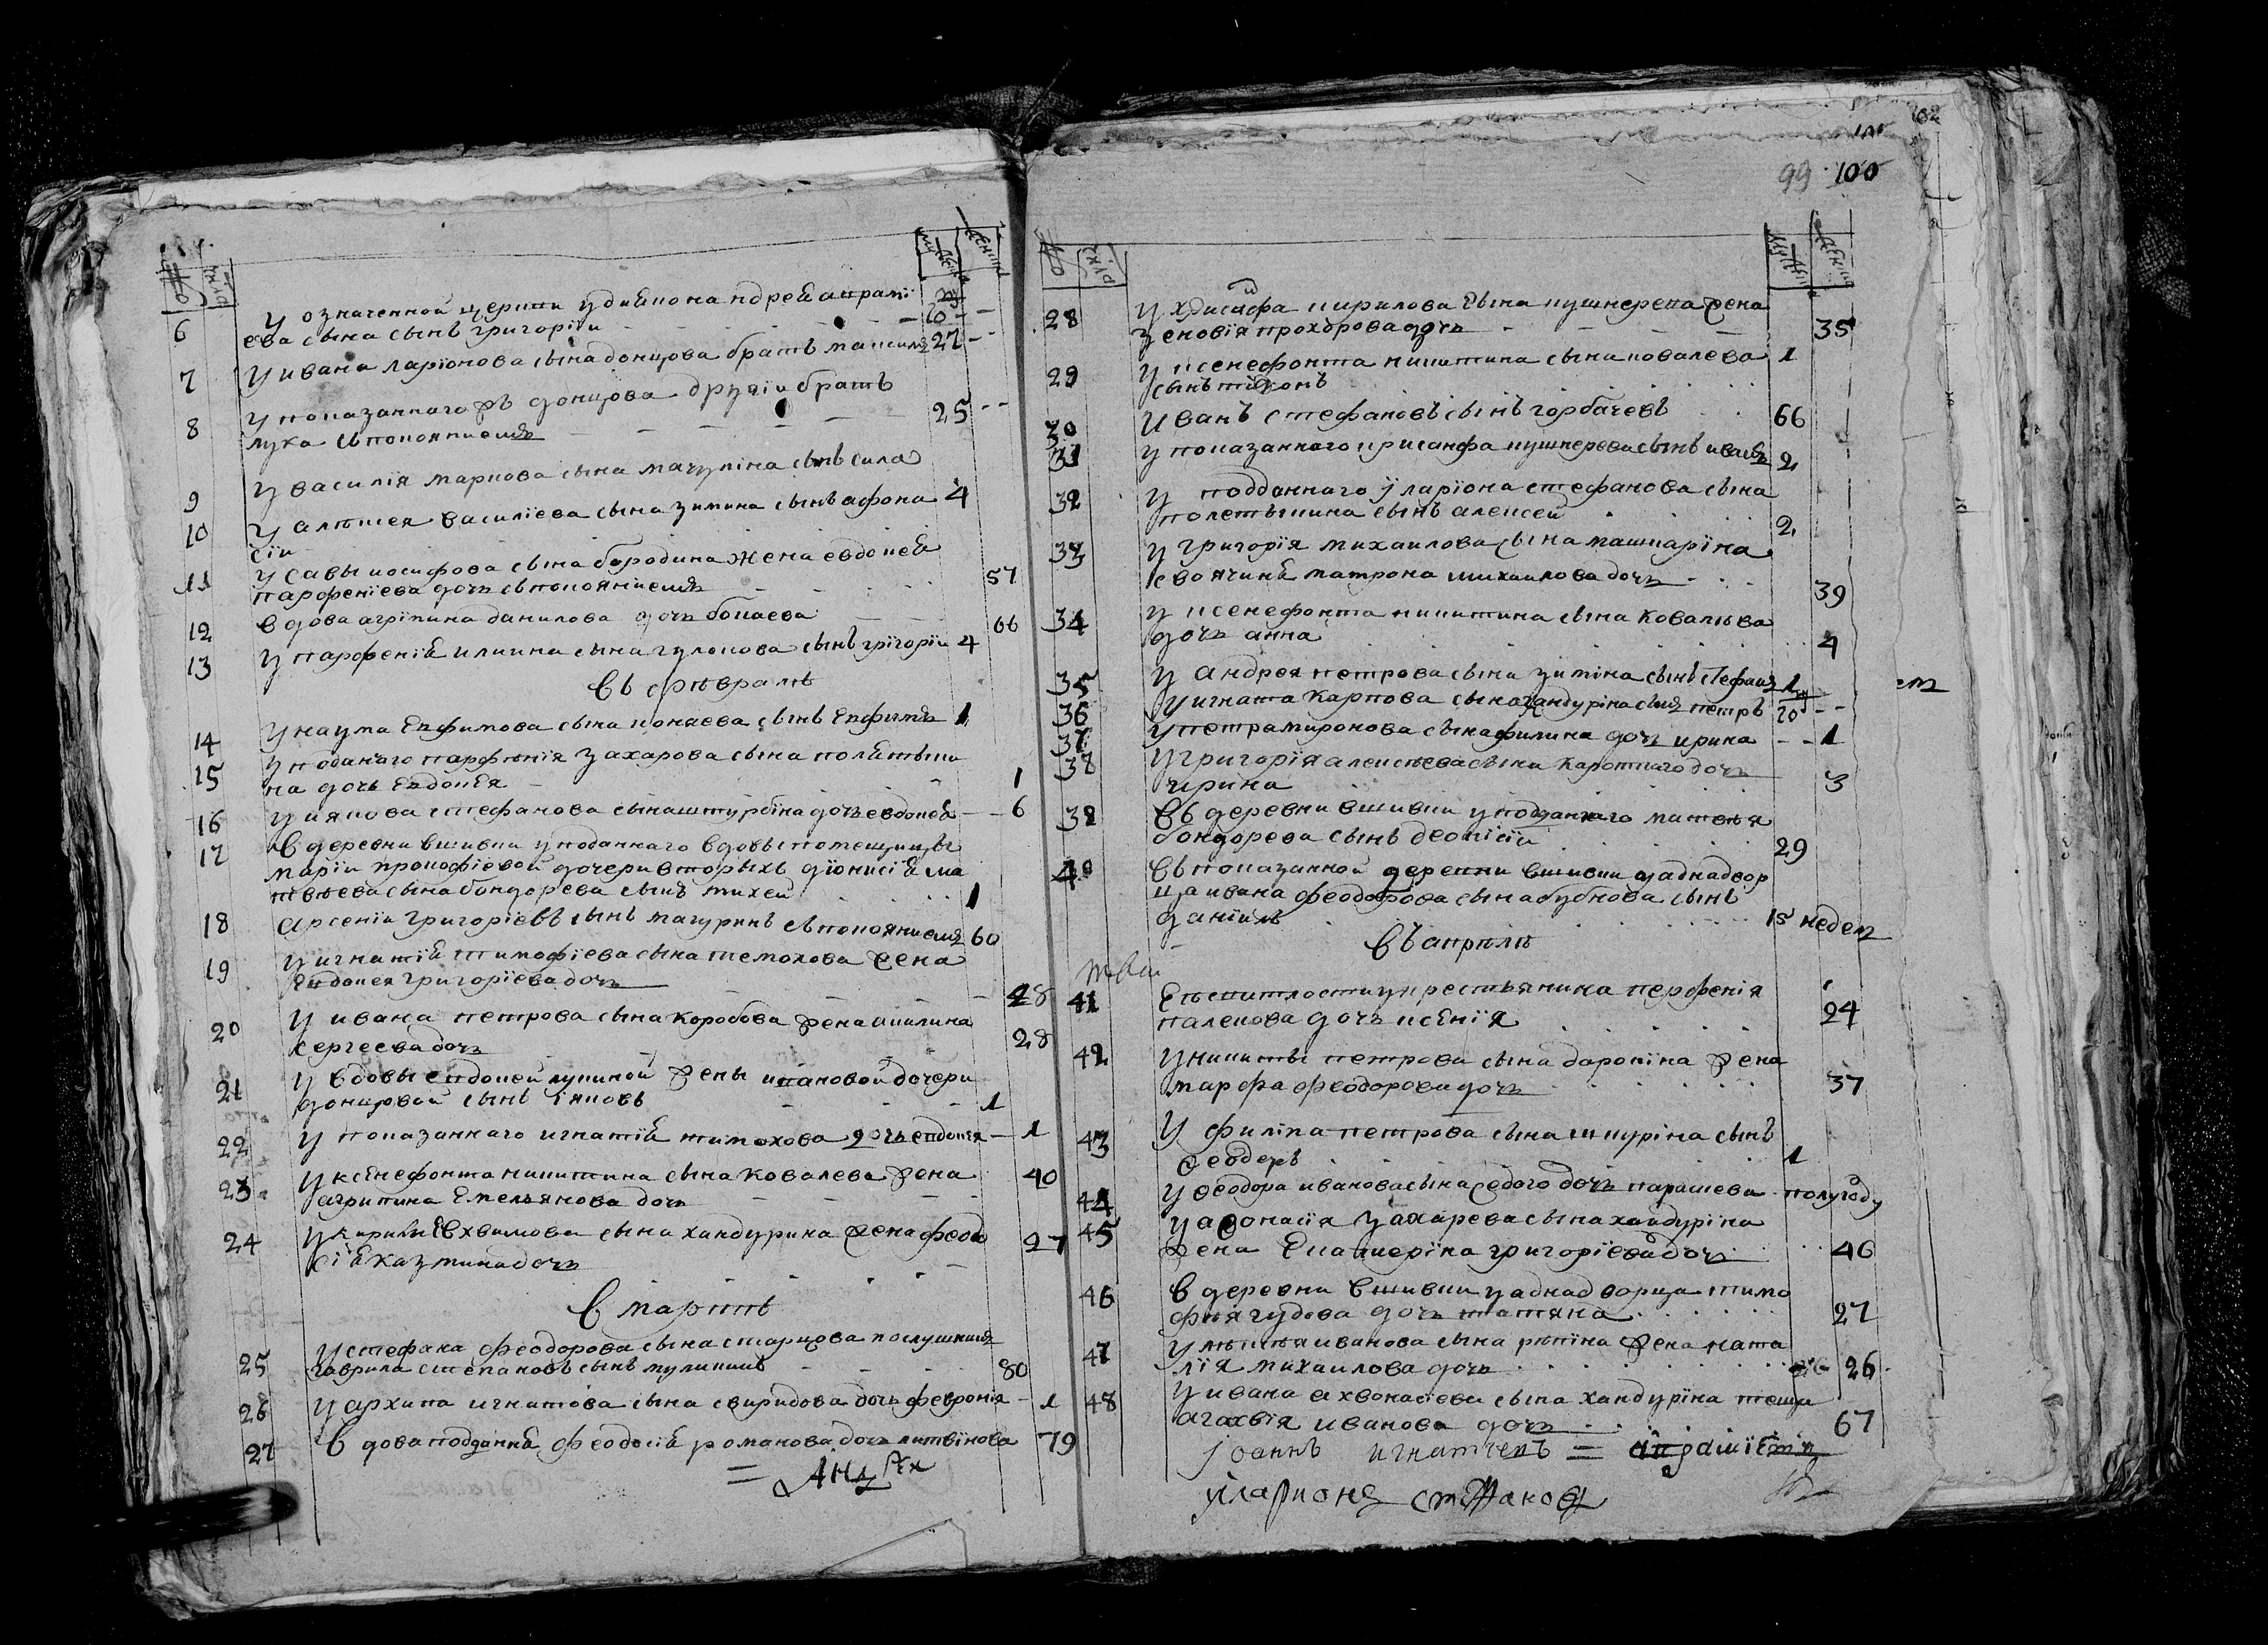 № числ мужеска женска
6 У означенной церкви у диякона андрея
ева сына сынъ григорїи 6
7 У ивана ларїонова сына донцова братъ 27
8 У показаннаго донцова другїи братъ
лука съ покоянїемъ 25
9 У василїя маркова сына мачулїна сынъ сила
10 У алѣксея василїева сына зимина сынъ афона 4
сїи
11 У савы иосифова сына бородина жена евдокея
парфенїева дочь съ покоянїемъ 57
12 вдова агрїпина данилова дочь бокаева 66
13 У парфенїя илиина сына гулокова сынъ грїгорїи 4
въ февралѣ
14 У наума епфимова сына конаева сынъ епфимъ 1
15 У поданаго парфѣнїя захарова сына полѣтыки
на дочь евдокея 1
16 У иякова стефанова сына штурбїна дочь евдокея 6
17 в деревни вшивки у поданнаго вдовы помещицы
марїи прокофїевой дочери вторыхъ дїонисїя ма
твѣева сына бондорева сынъ михеи 1
18 арсенїи григорїевъ сынъ мачуринъ съ покоянїемъ 60
19 У игнатїя тимофїева сына темохова жена
евдокея григорїева дочь 28
20 У ивана петрова сына коробова жена акилина
сергеева дочь 28
21 У вдовы евдокеи лукиной жены ивановой дочери
донцовой сынъ їяковъ 1
22 У показаннаго игнатїя тимохова дочь евдокея 1
23 У ксенефонта никитина сына ковалева жена
агрипина емельянова дочь 40
24 У кирила евхвимова сына хандурина жена феодо
сїя казмина дочь 27
в мартѣ
25 У стефана феодорова сына старцова послушникъ
гаврила степановъ сынъ 80
26 У архипа игнатова сына свиридова дочь феврония 1
27 вдова подданная феодосїя романова дочь литвїнова 79
99 100
№ числ мужеска женска
28 У хрисанфа кирилова сына кушнерева жена
зеновїя прохорова дочь 35
29 У ксенефонта никитина сына ковалева 1
сынъ тїхонъ
30 Иванъ стефановъ сынъ горбачевъ 66
31 У показаннаго хрисанфа кушнерева сынъ иванъ 2
32 У подданнаго їларїона стефанова сына
полетыкина сынъ алексеи 2
33 У григорїя михаилова сына машкарїна
своячина матрона михаилова дочь 39
34 У ксенефонта никитина сына ковалѣва
дочь анна 4
35 У андрея петрова сына зимїна сынъ стефанъ 1
36 У игната карпова сына хандурїна сынъ петръ 20
37 У петра миронова сына филина дочь ирина 1
38 У григорїя алексѣева сына кароткаго дочь
ирина 3
38 въ деревни вшивки у подданнаго матвѣя
бондорева сынъ деонїсїи 29
40 въ показанной деревни вшивки у аднадвор
ца ивана феодорова сына бубнова сынъ
данїилъ 15 недел
въ апрѣлѣ
41 крестьянина перфенїя
палекова дочь ксенїя 24
42 У никиты петрова сына доронїна жена
марфа феодорова дочь 37
43 У филїпа петрова сына шкурїна сынъ
феодоръ 1
44 У феодора иванова сына седого дочь парашева полугоду
45 У афонасїя захарева сына хандурїна
жена екатерїна григорїева дочь 46
46 в деревни вшивки у аднадворца тимо
фѣя гудова дочь татяна 27
47 У иванова сына рѣпїна жена ната
лїя михаилова дочь 26
48 У ивана ахвонасїева сына хандурїна теща
агафїя иванова дочь 67
їоаннъ игнатиевъ =
їларионъ стефановъ